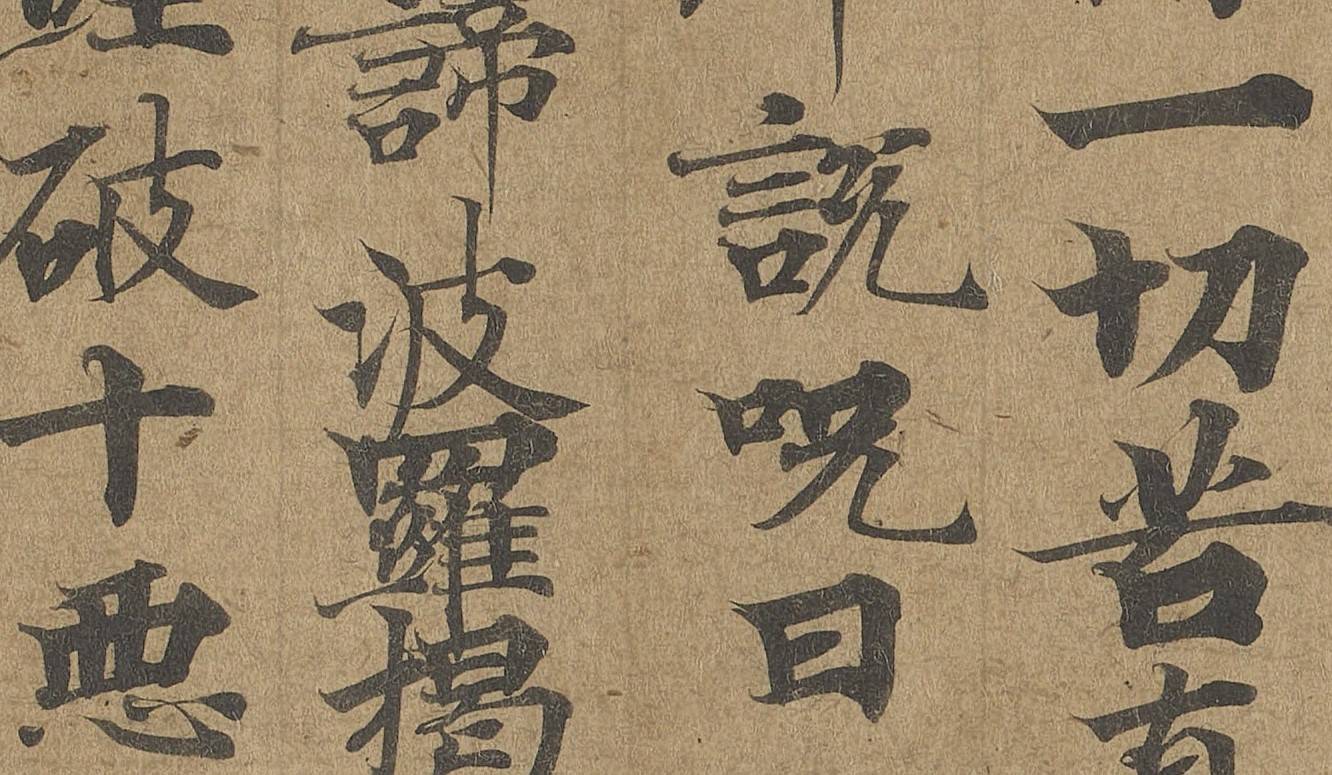 一切苦真
說呪曰
諦波羅揭
經破十惡